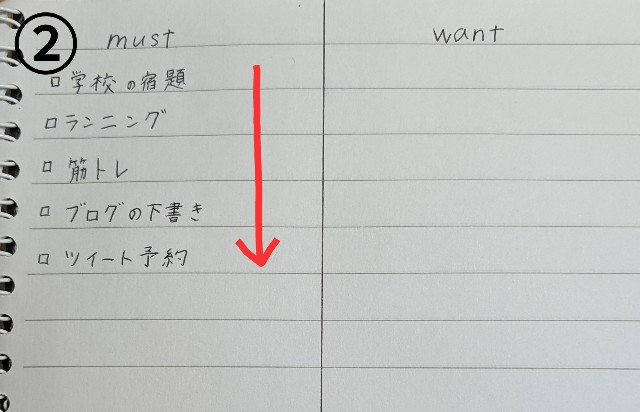 ②
must
want
□学校の宿題
□ランニング
□筋トレ
□ブログの下書き
□ツイート予約